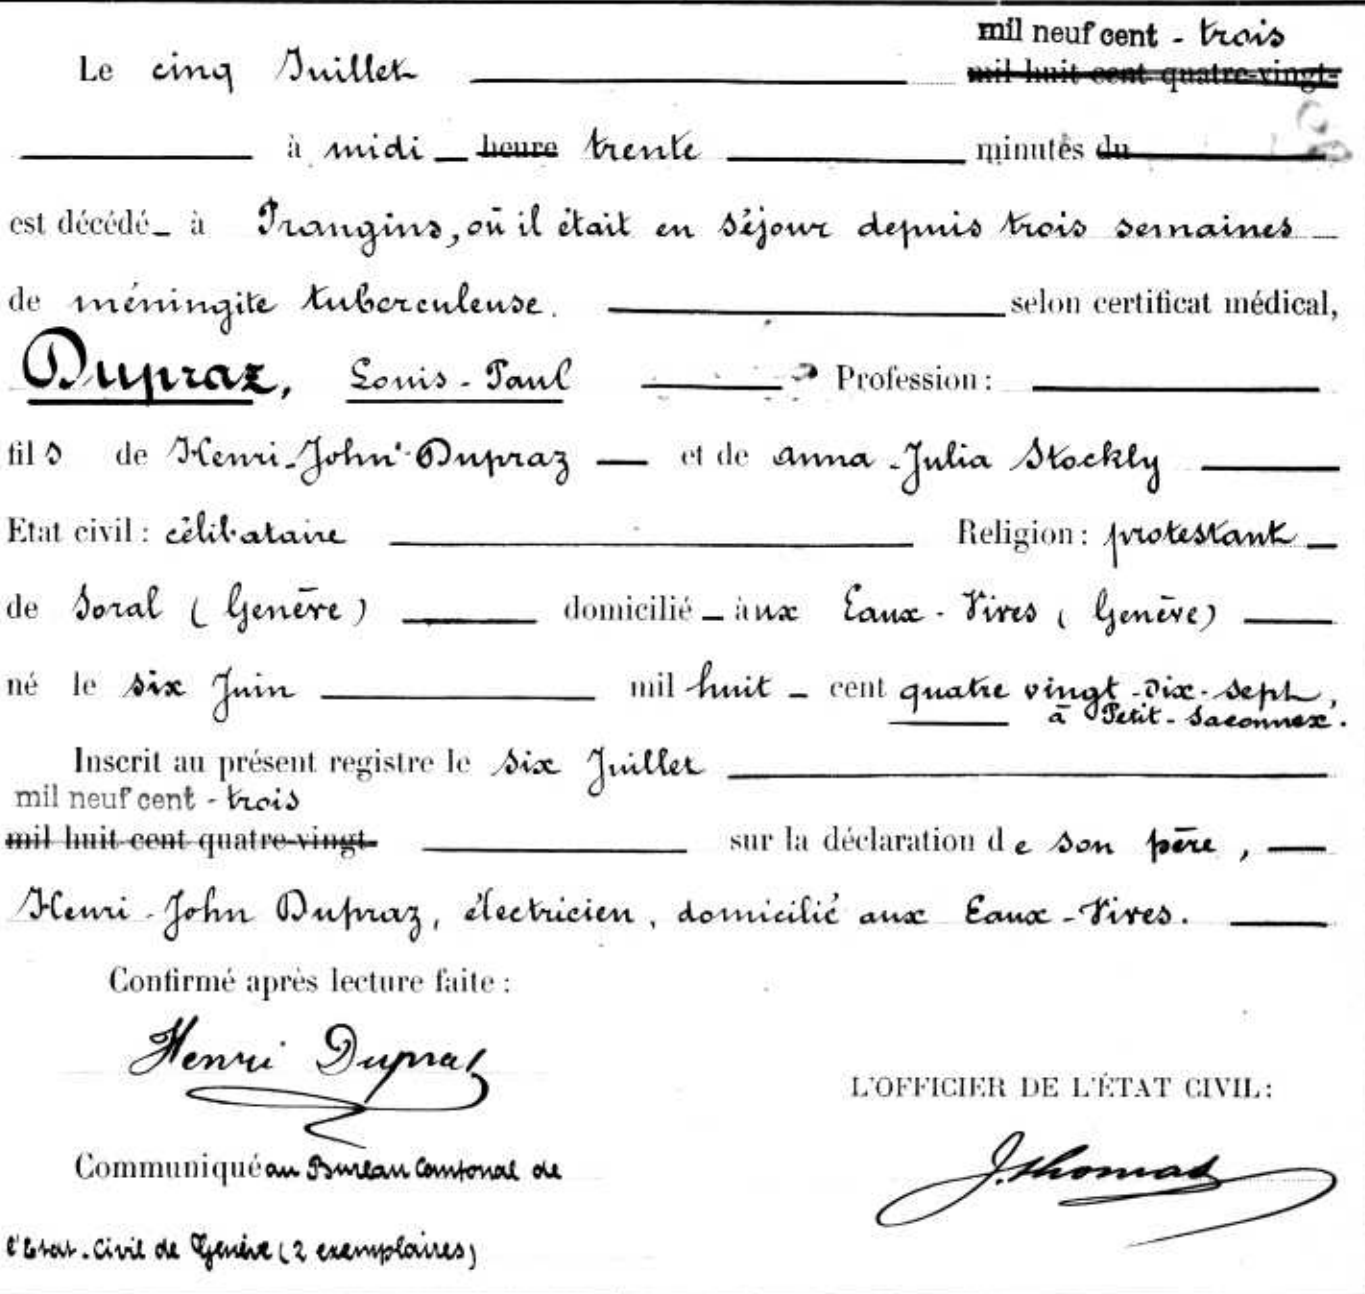 mil neuf cent - trois
Le cinq Juillet mil huit cent quatre-vingt-
à midi heure trente minutes du
est décédé à Prangins, où il était en séjour depuis trois semaines
de méningite tuberculeuse. selon certificat médical,
Dupraz, Louis-Paul Profession :
fils de Henri-John Dupraz et de Anna-Julia Stockly
Etat civil : célibataire Religion : protestant
de Soral (Genève) domicilié aux Eaux-Vives (Genève)
né le six Juin mil huit cent quatre vingt-dix-sept,
à Petit-Saconnex.
Inscrit au présent registre le six Juillet
mil neuf cent - trois
mil huit cent quatre-vingt- sur la déclaration de son père,
Henri-John Dupraz, électricien, domicilié aux Eaux-Vives.
Confirmé après lecture faite :
Henri Dupraz
L'OFFICIER DE L'ÉTAT CIVIL :
J. Thomas
Communiqué au Bureau Cantonal de
l'Etat-Civil de Genève (2 exemplaires)